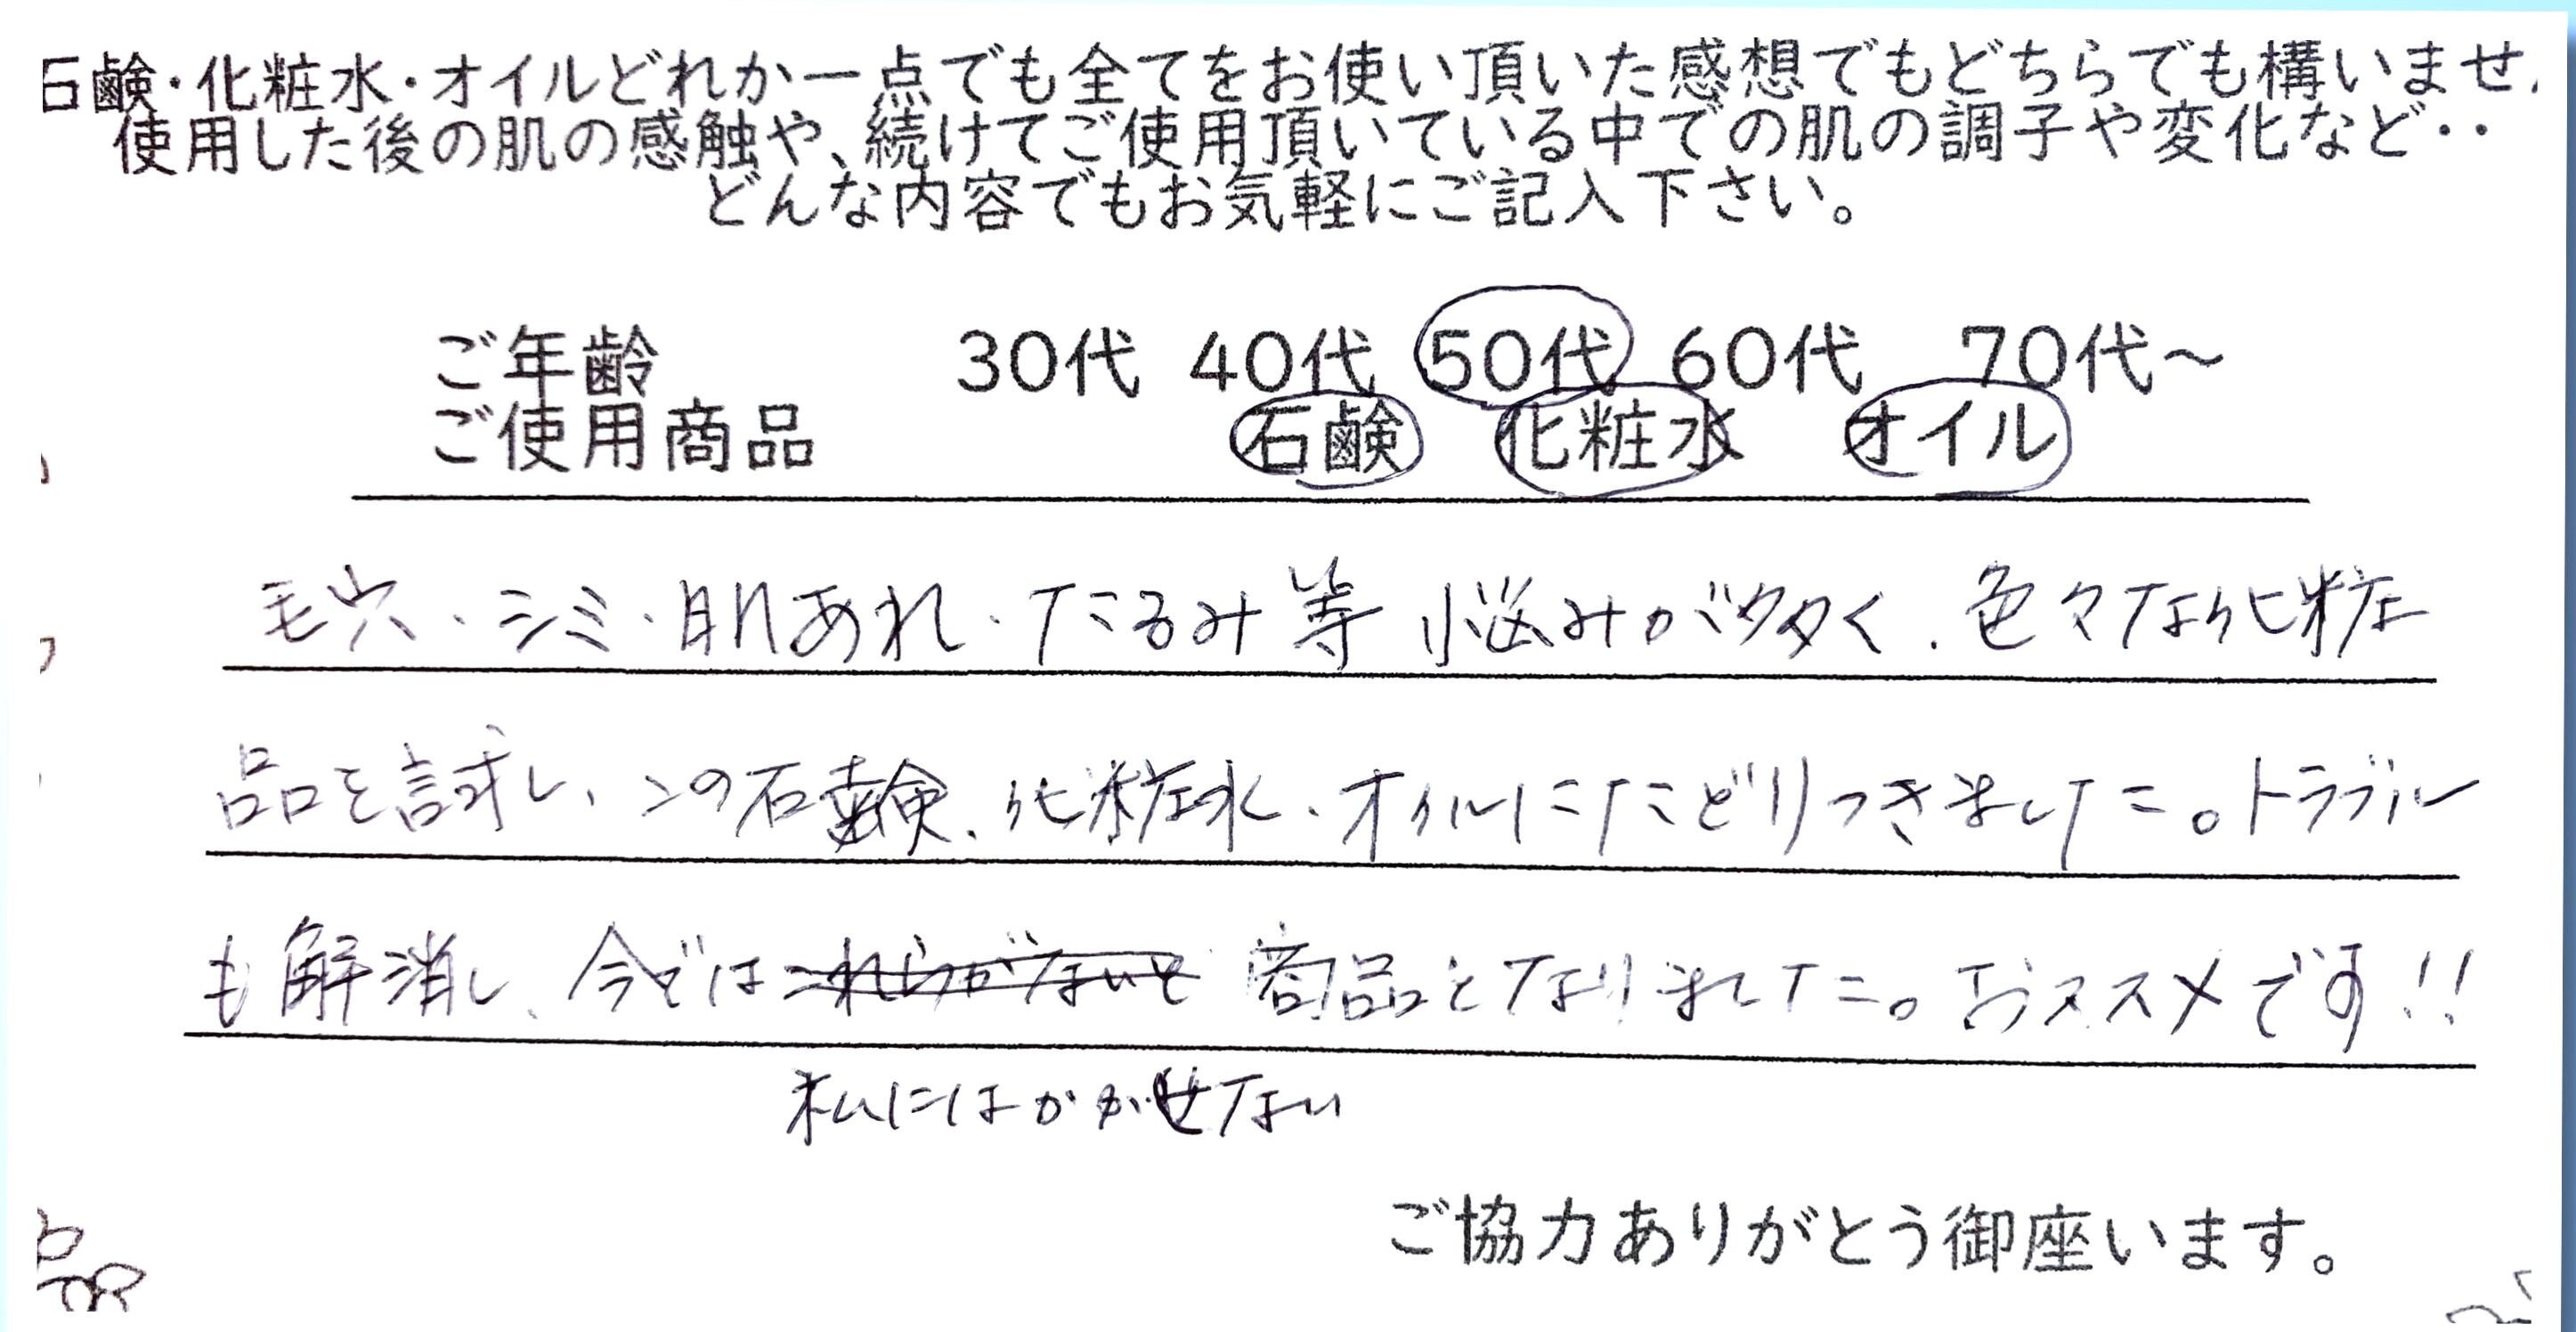 石鹸・化粧水・オイルどれか一点でも全てをお使い頂いた感想でもどちらでも構いませ
使用した後の肌の感触や、続けてご使用頂いている中での肌の調子や変化など‥
どんな内容でもお気軽にご記入下さい。
ご年齢 30代 40代 50代 60代 70代～
ご使用商品 石鹸 化粧水 オイル
毛穴・シミ・肌あれ・たるみ等 悩みが多く、色々な化粧
品を試し、この石鹸、化粧水、オイルにたどりつきました。トラブル
も解消し、今では これらがないと 商品となりました。おススメです!!
私にはかかせない
ご協力ありがとう御座います。